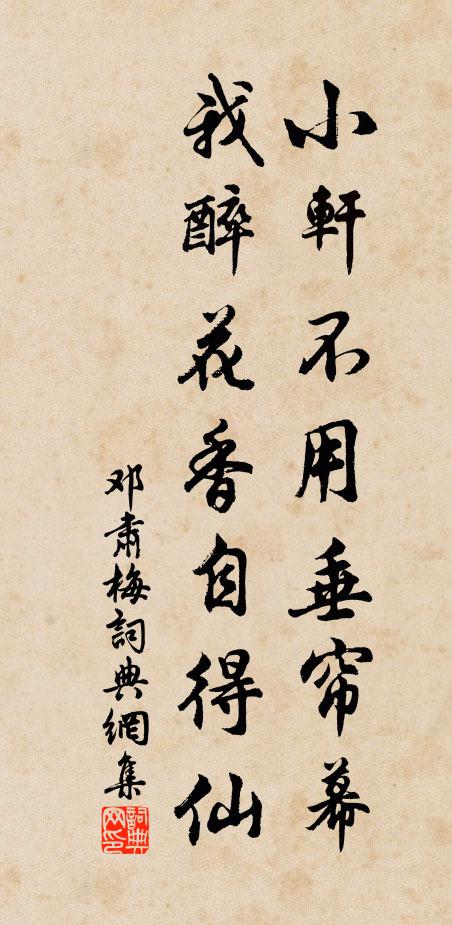 小軒不用垂帘幕
我醉花香自得仙
邓肅梅詞典網集
詞典网印